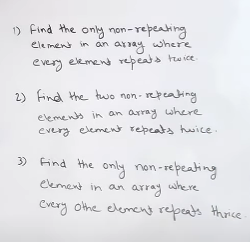 1) Find the only non-repeating
element in an array where
every element repeats twice.
2) Find the two non-repeating
elements in an array where
every element repeats twice.
3) Find the only non-repeating
element in an array where
every othe element repeats thrice.